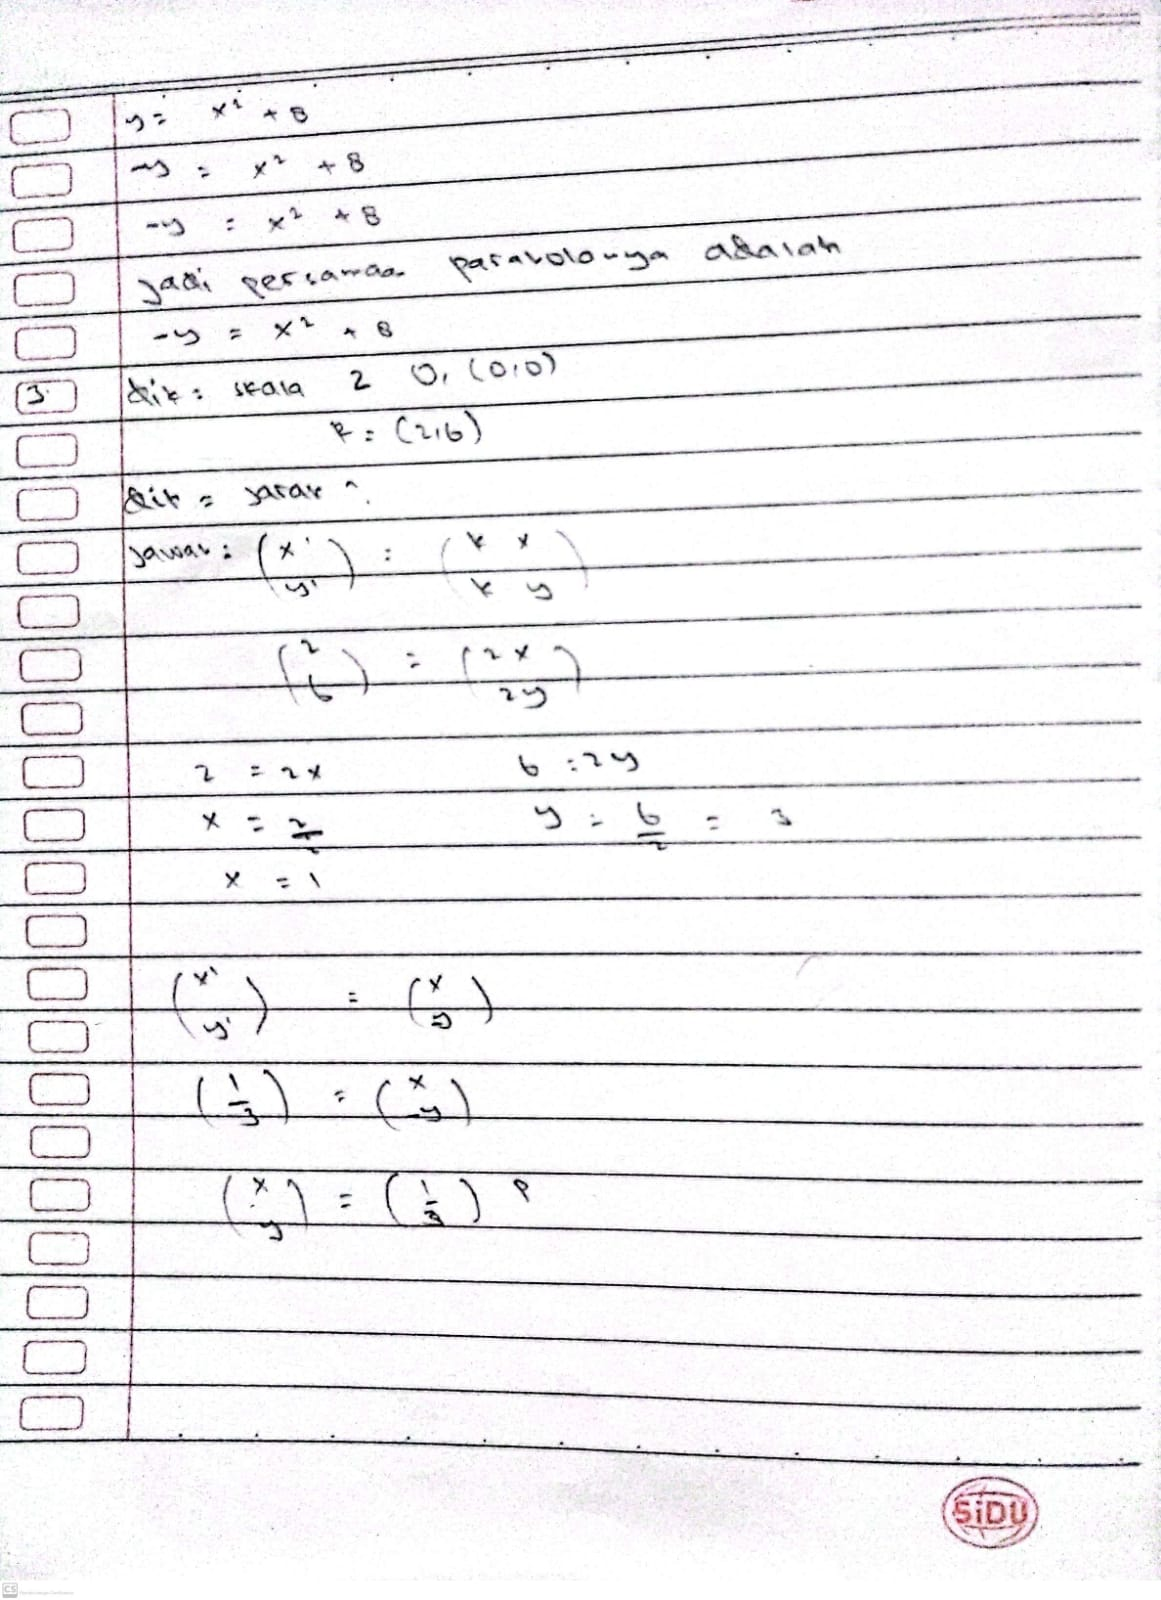 y = x² + 8
-y = x² + 8
-y = x² + 8
Jadi persamaan parabolanya adalah
-y = x² + 8
3. dik : skala 2 O, (0,0)
R = (2,6)
dit = Jarak ?
Jawab : (x' y') = (k x k y)
(2 6) = (2x 2y)
2 = 2x 6 = 2y
x = 2/2 y = 6/2 = 3
x = 1
(x' y') = (x y)
(1 -3) = (x -y)
(x y) = (1 -3) P
SiDU
CS